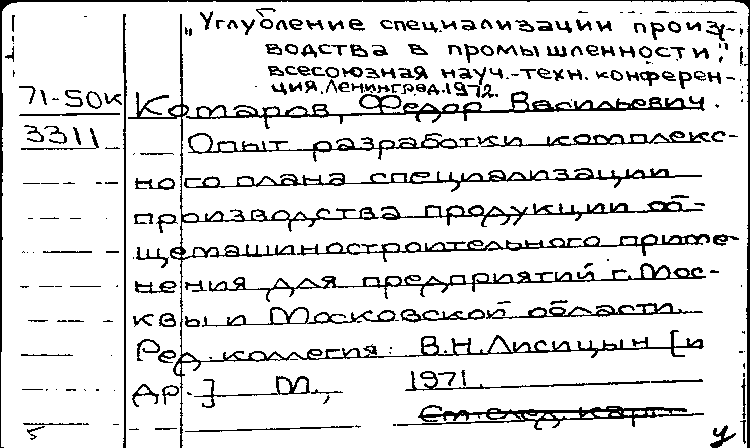 „Углубление специализации произ-
водства в промышленности",
всесоюзная науч.-техн. конферен-
ция, Ленинград. 1972.
71-50К Комаров, Федор Васильевич.
3311 Опыт разработки комплекс-
ного плана специализации
производства продукции об-
щемашиностроительного приме-
нения для предприятий г. Мос-
квы и Московской области.
Ред. коллегия: В.Н. Лисицын [и
др.] М., 1971.
См. след. карт.
5 у